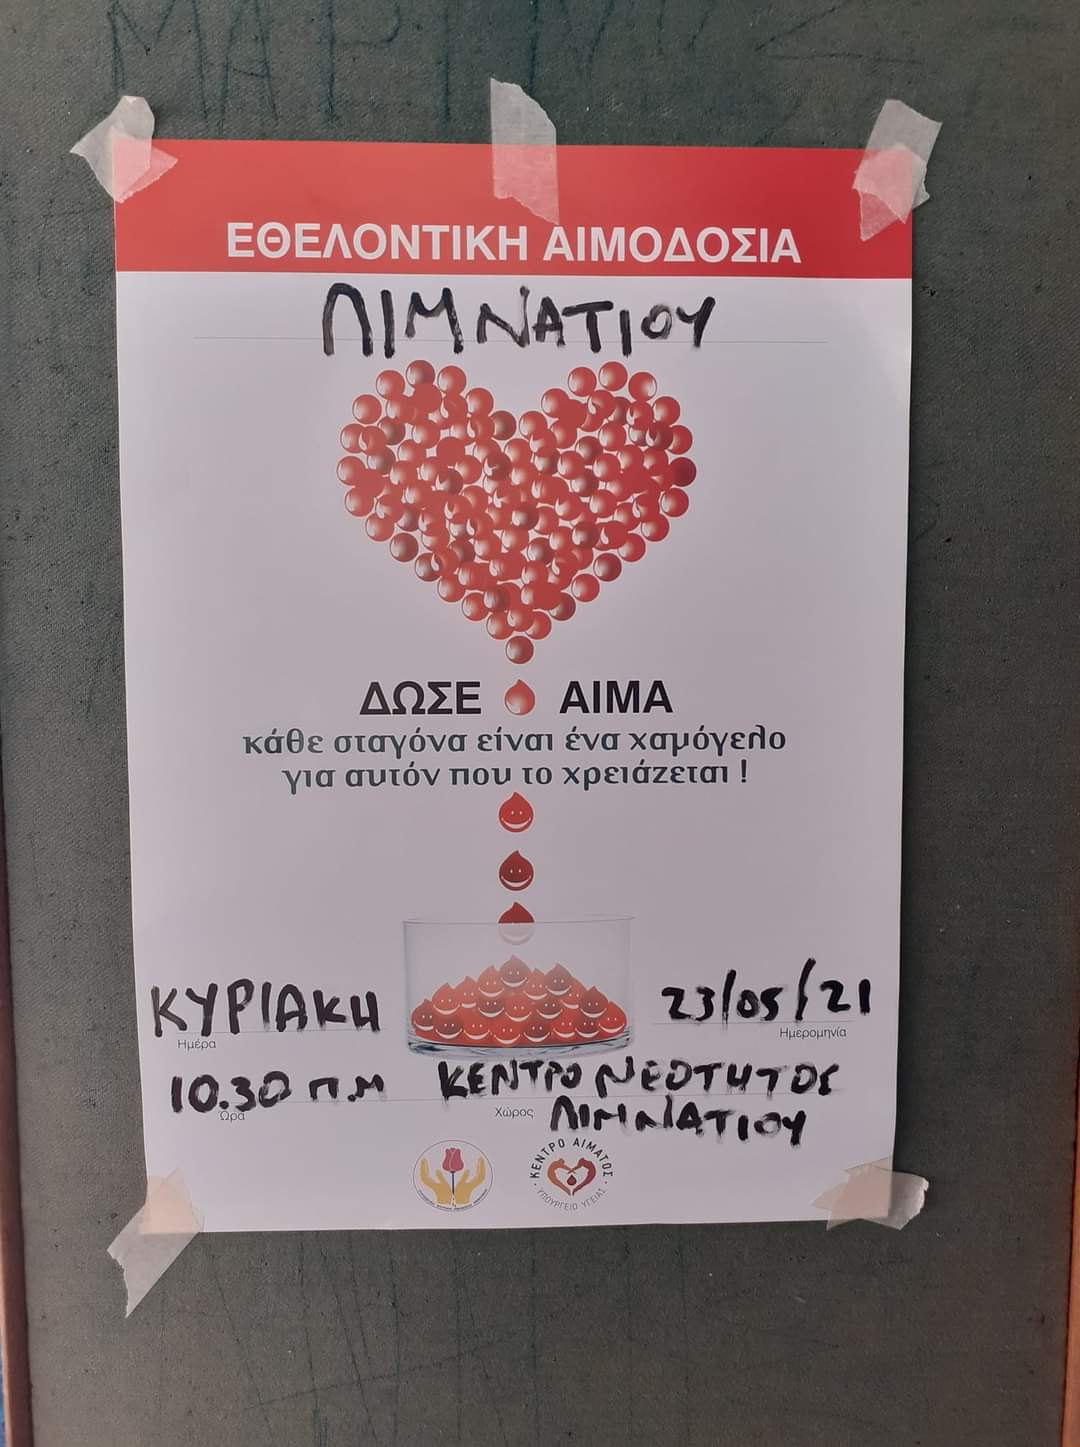 ΕΘΕΛΟΝΤΙΚΗ ΑΙΜΟΔΟΣΙΑ
ΛΙΜΝΑΤΙΟΥ
ΔΩΣΕ ΑΙΜΑ
κάθε σταγόνα είναι ένα χαμόγελο
για αυτόν που το χρειάζεται !
ΚΥΡΙΑΚΗ 23/05/21
Ημέρα Ημερομηνία
10.30 π.μ ΚΕΝΤΡΟ ΝΕΟΤΗΤΟΣ
Ώρα Χώρος ΛΙΜΝΑΤΙΟΥ
ΚΕΝΤΡΟ ΑΙΜΑΤΟΣ
ΥΠΟΥΡΓΕΙΟ ΥΓΕΙΑΣ